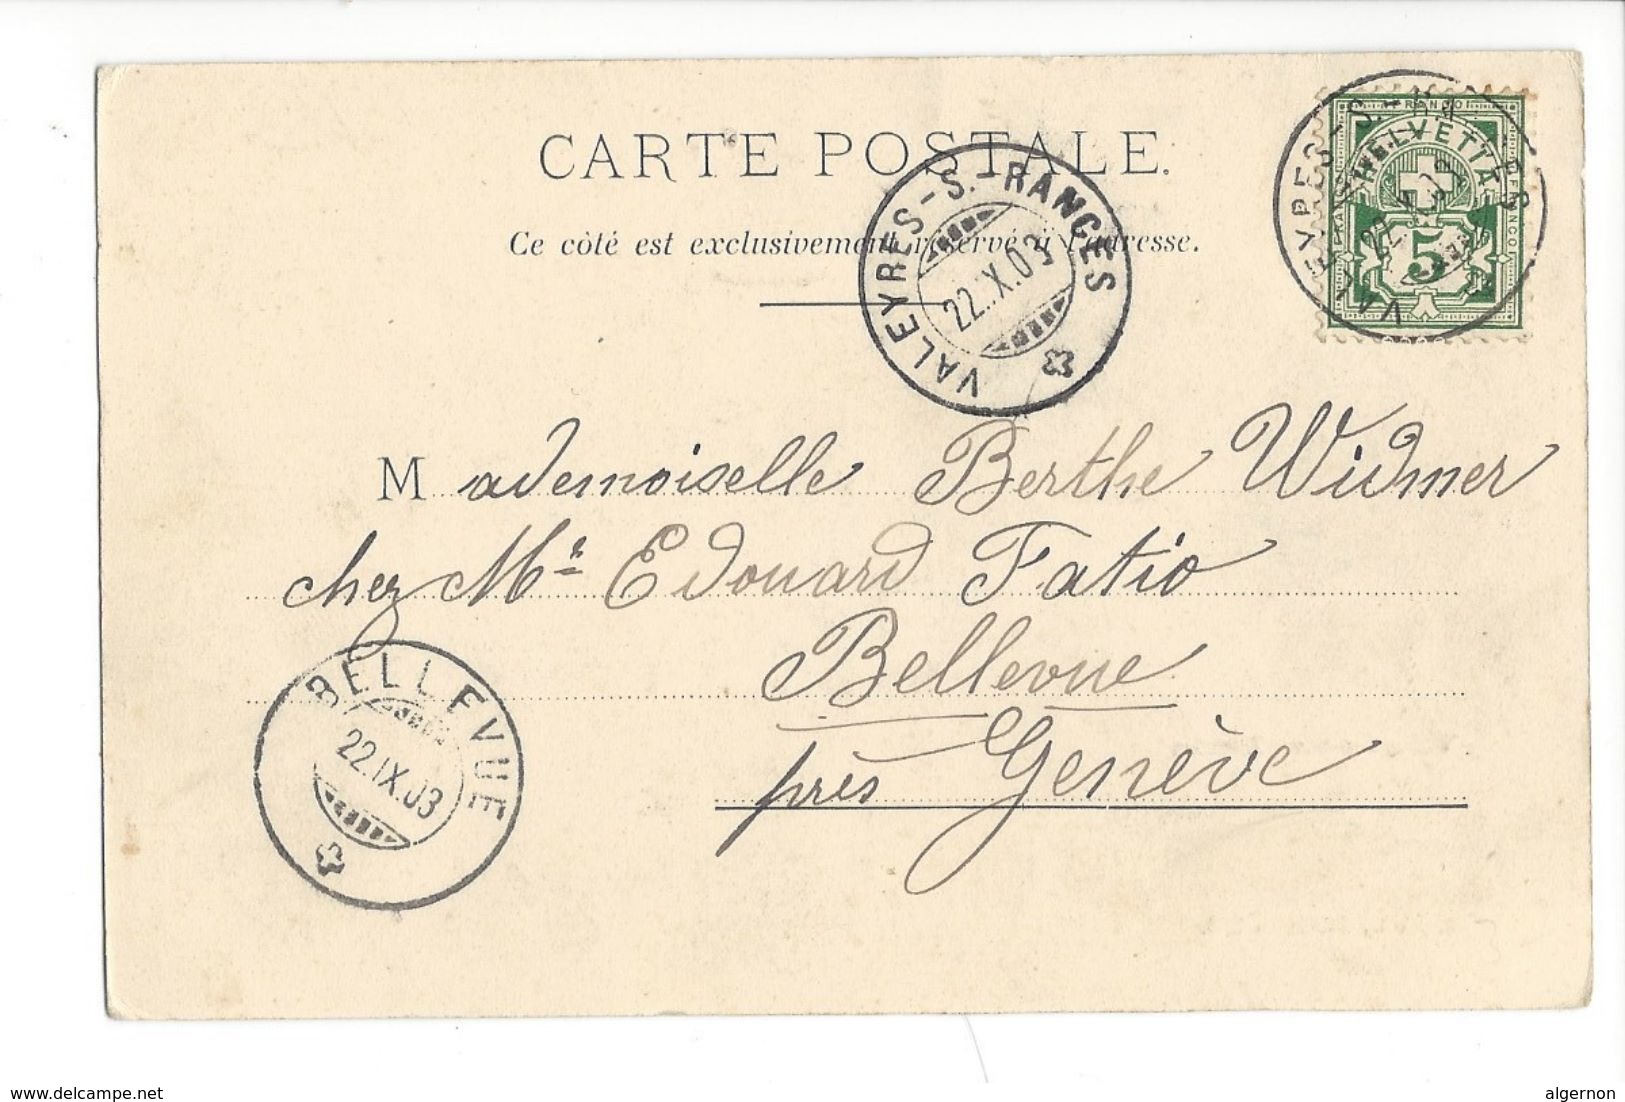 CARTE POSTALE.
Ce côté est exclusivement réservé à l'adresse.
VALEYRES-S.-RANCES
22.IX.03
FRANCO
HELVETIA
5
Mademoiselle Berthe Widmer
chez Mr Edouard Fatio
Bellevue
près Genève
BELLEVUE
22.IX.03
www.delcampe.net
algernon